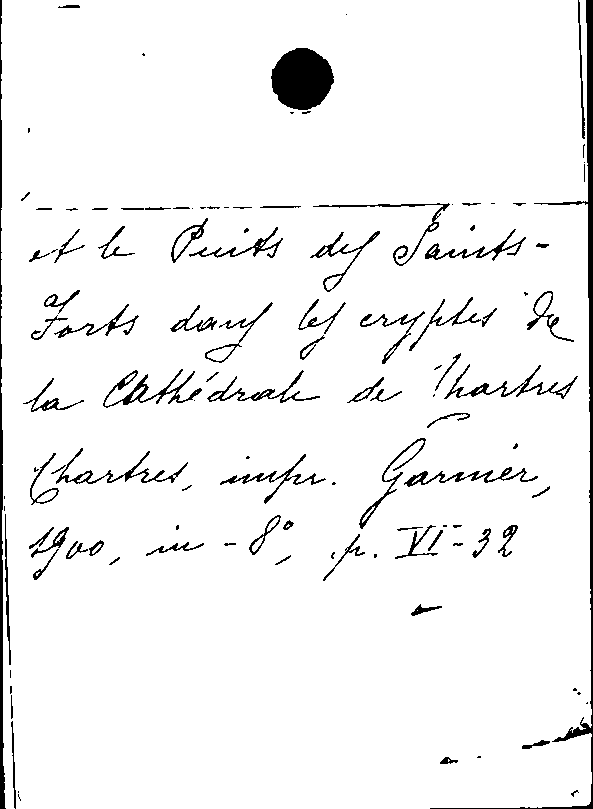 et le Puits des Saints-
Forts dans les cryptes de
la Cathédrale de Chartres
Chartres, impr. Garnier,
1900, in-8°, p. VI-32